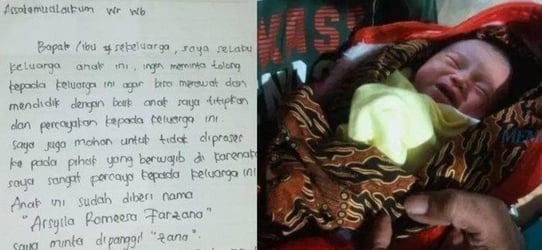 Assalamualaikum Wr Wb
Bapak / ibu & sekeluarga, saya selaku
keluarga anak ini, ingin meminta tolong
kepada keluarga ini agar bisa merawat dan
mendidik dengan baik anak saya titipkan
dan percayakan kepada keluarga ini.
saya juga mohon untuk tidak diproses
ke pada pihak yang berwajib di karenakan
saya sangat percaya kepada keluarga ini
Anak ini sudah diberi nama
"Arsyila Romeesa Farzana"
saya minta dipanggil "zana".
KAS